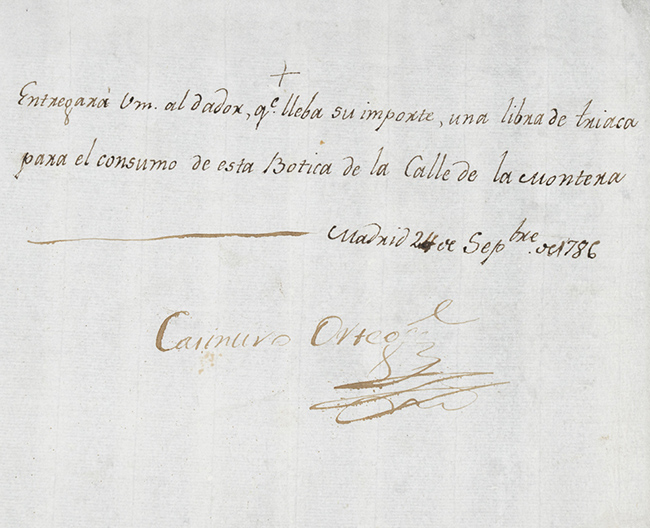 +
Entregará Vm. al dador, qe. lleba su importe, una libra de triaca
para el consumo de esta Botica de la Calle de la Montera
Madrid 24 de Sepbre. de 1786
Casimiro Ortega